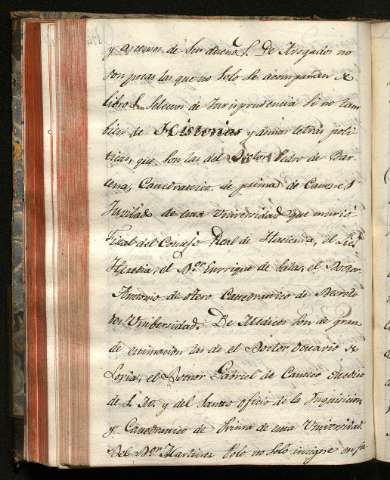 y asientos de sus dueños. De Abogados no
son pocas las que no solo se acompañan de
libros selectos de Jurisprudencia si no tam
bien de Historias y buenas letras poli
ticas, que son las del Doctor Pedro de Bar
Cathedratico de prima de Canones
Jubilado de esta Universidad que murió
Fiscal del Consejo Real de Hacienda, el
el Dor. Enrique de el Doctor
Antonio de Cathedratico de Decreto
Universidad. De Medicos son de gran
de estimacion las de el Doctor
el Doctor Gabriel de Medico
de S. M. y del Santo oficio de la Inquisicion
y Cathedratico de Prima de esta Universidad
Del Dor. Martinez solo no solo insigne en su